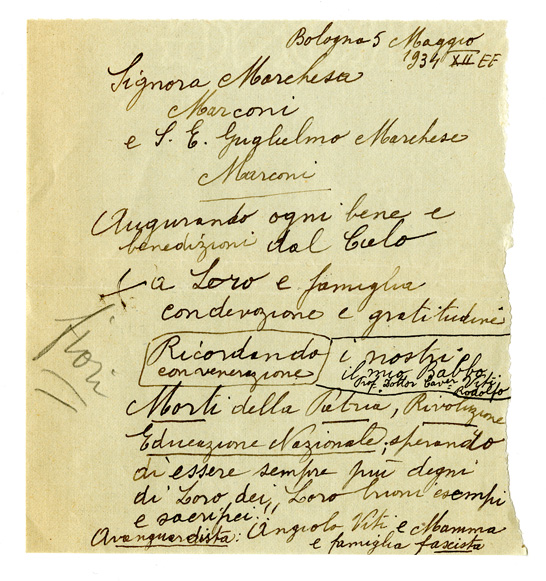 Bologna 5 Maggio
1934 XII EF
Signora Marchesa
Marconi
e S. E. Guglielmo Marchese
Marconi
Augurando ogni bene e
benedizioni dal Cielo
a Loro e famiglia
con devozione e gratitudine
fiori
Ricordando i nostri
con venerazione il mio Babbo
Prof. Dottor Cav. Viti
Rodolfo
Morti della Patria, Rivoluzione
Educazione Nazionale, sperando
di essere sempre più degni
di Loro dei Loro buoni esempi
e sacrifici!!
Avanguardista: Angiolo Viti e Mamma
e famiglia fascista